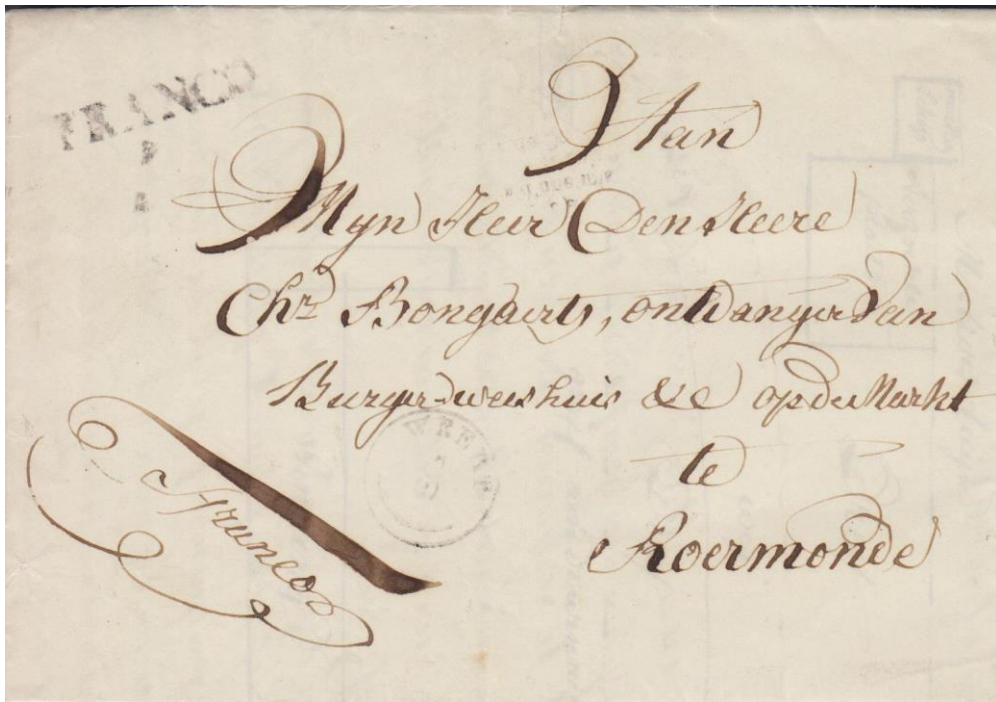 FRANCO
Aan
Mijn Heer Den Heere
Chr. Bongaerts, ontvanger van
Burger-weeshuis &c op de Markt
te
Roermonde
WEERT
franco